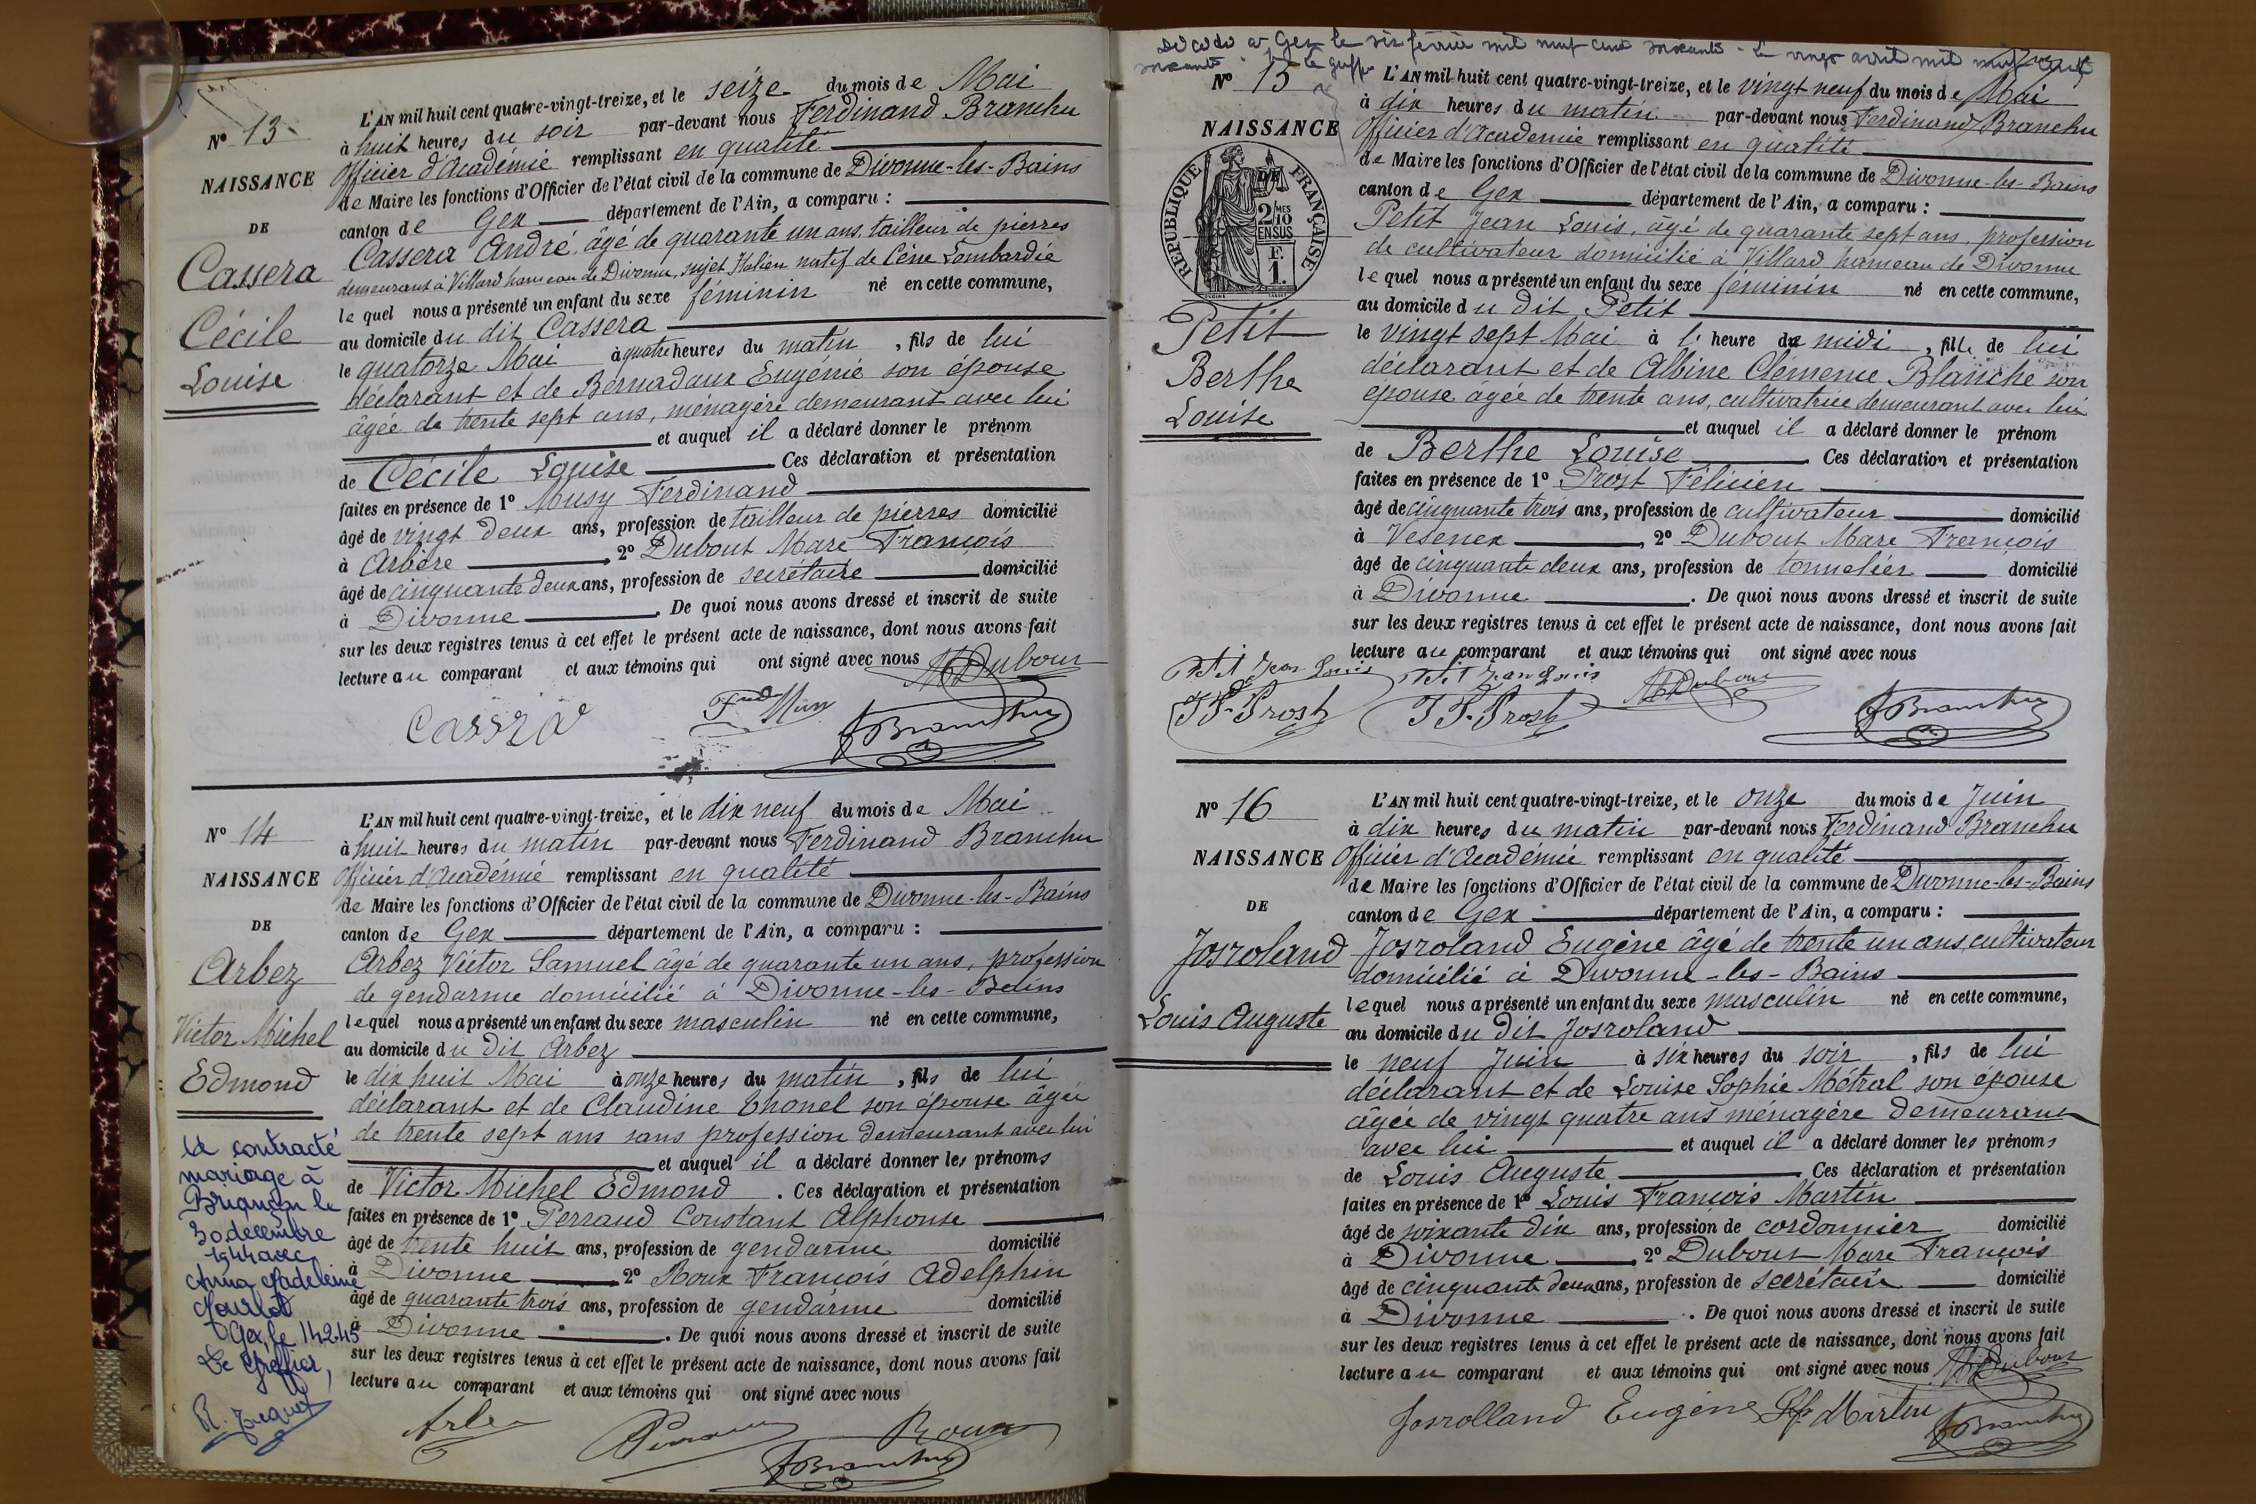 N° 13
NAISSANCE
DE
Cassera
Cécile
Louise
L'AN mil huit cent quatre-vingt-treize, et le seize du mois de Mai
à huit heures du soir par-devant nous Ferdinand Branchu
Officier d'Académie remplissant en qualité
de Maire les fonctions d'Officier de l'état civil de la commune de Divonne-les-Bains
canton de Gex département de l'Ain, a comparu :
Cassera André, âgé de quarante un ans, tailleur de pierres
demeurant à Villard hameau de Divonne, sujet Italien natif de Lombardie
lequel nous a présenté un enfant du sexe féminin né en cette commune,
au domicile du dit Cassera
le quatorze Mai à quatre heures du matin, fils de lui
déclarant et de Bernadaux Eugénie son épouse
âgée de trente sept ans, ménagère demeurant avec lui
et auquel il a déclaré donner le prénom
de Cécile Louise Ces déclaration et présentation
faites en présence de 1° Musy Ferdinand
âgé de vingt deux ans, profession de tailleur de pierres domicilié
à Arbère 2° Dubout Marc François
âgé de cinquante deux ans, profession de secrétaire domicilié
à Divonne. De quoi nous avons dressé et inscrit de suite
sur les deux registres tenus à cet effet le présent acte de naissance, dont nous avons fait
lecture au comparant et aux témoins qui ont signé avec nous MDubout
Fnd
FBranchu
N° 14
NAISSANCE
DE
Arbez
Victor Michel
Edmond
contracté
mariage à
Briançon le
30 décembre
1944 avec
Anna Madeleine
Gex, le 14.2.45
Le Greffier,
L'AN mil huit cent quatre-vingt-treize, et le dix neuf du mois de Mai
à huit heures du matin par-devant nous Ferdinand Branchu
Officier d'Académie remplissant en qualité
de Maire les fonctions d'Officier de l'état civil de la commune de Divonne-les-Bains
canton de Gex département de l'Ain, a comparu :
Arbez Victor Samuel âgé de quarante un ans, profession
de gendarme domicilié à Divonne-les-Bains
lequel nous a présenté un enfant du sexe masculin né en cette commune,
au domicile du dit Arbez
le dix huit Mai à onze heures du matin, fils de lui
déclarant et de Claudine Thonel son épouse âgée
de trente sept ans sans profession demeurant avec lui
et auquel il a déclaré donner les prénoms
de Victor Michel Edmond. Ces déclaration et présentation
faites en présence de 1° Perraud Constant Alphonse
âgé de trente huit ans, profession de gendarme domicilié
à Divonne 2° Roux François Adelphin
âgé de quarante trois ans, profession de gendarme domicilié
à Divonne. De quoi nous avons dressé et inscrit de suite
sur les deux registres tenus à cet effet le présent acte de naissance, dont nous avons fait
lecture au comparant et aux témoins qui ont signé avec nous
Arbez Roux
FBranchu
Décédée à Gex le six février mil neuf cent soixante - Le vingt avril mil neuf cent
soixante. Le greffier
N° 15
NAISSANCE
DE
RÉPUBLIQUE FRANÇAISE
2/10
MES
EN SUS
F.
1.
Petit
Berthe
Louise
L'AN mil huit cent quatre-vingt-treize, et le vingt neuf du mois de Mai
à dix heures du matin par-devant nous Ferdinand Branchu
Officier d'Académie remplissant en qualité
de Maire les fonctions d'Officier de l'état civil de la commune de Divonne-les-Bains
canton de Gex département de l'Ain, a comparu :
Petit Jean Louis, âgé de quarante sept ans, profession
de cultivateur domicilié à Villard hameau de Divonne
lequel nous a présenté un enfant du sexe féminin né en cette commune,
au domicile du dit Petit
le vingt sept Mai à 1 heure de midi, fille de lui
déclarant et de Albine Clémence Blanche son
épouse âgée de trente ans, cultivatrice demeurant avec lui
et auquel il a déclaré donner le prénom
de Berthe Louise. Ces déclaration et présentation
faites en présence de 1° Prost Félicien
âgé de cinquante trois ans, profession de cultivateur domicilié
à Vesenex 2° Dubout Marc François
âgé de cinquante deux ans, profession de tonnelier domicilié
à Divonne. De quoi nous avons dressé et inscrit de suite
sur les deux registres tenus à cet effet le présent acte de naissance, dont nous avons fait
lecture au comparant et aux témoins qui ont signé avec nous
Petit Jean Louis Petit Jean Louis MDubout
Prost Prost FBranchu
N° 16
NAISSANCE
DE
Josroland
Louis Auguste
L'AN mil huit cent quatre-vingt-treize, et le onze du mois de Juin
à dix heures du matin par-devant nous Ferdinand Branchu
Officier d'Académie remplissant en qualité
de Maire les fonctions d'Officier de l'état civil de la commune de Divonne-les-Bains
canton de Gex département de l'Ain, a comparu :
Josroland Eugène âgé de trente un ans, cultivateur
domicilié à Divonne-les-Bains
lequel nous a présenté un enfant du sexe masculin né en cette commune,
au domicile du dit Josroland
le neuf Juin à six heures du soir, fils de lui
déclarant et de Louise Sophie Métral son épouse
âgée de vingt quatre ans ménagère demeurant
avec lui et auquel il a déclaré donner les prénoms
de Louis Auguste Ces déclaration et présentation
faites en présence de 1° Louis François Martin
âgé de soixante dix ans, profession de cordonnier domicilié
à Divonne 2° Dubout Marc François
âgé de cinquante deux ans, profession de secrétaire domicilié
à Divonne. De quoi nous avons dressé et inscrit de suite
sur les deux registres tenus à cet effet le présent acte de naissance, dont nous avons fait
lecture au comparant et aux témoins qui ont signé avec nous MDubout
Josrolland Eugène Martin FBranchu